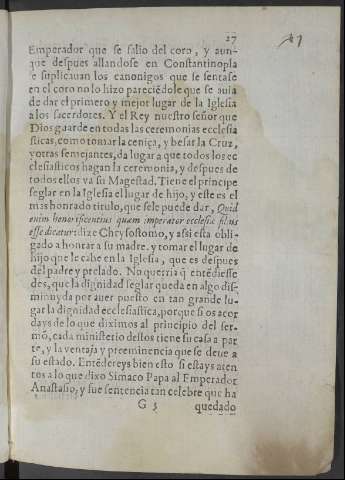 27
Emperador que se salio del coro, y aun-
que despues allandose en Constantinopla
le suplicauan los canonigos que se sentase
en el coro no lo hizo pareciẽdole que se auia
de dar el primero y mejor lugar de la Iglesia
a los sacerdotes. Y el Rey nuestro señor que
Dios guarde en todas las ceremonias ecclesia
sticas, como tomar la ceniça, y besar la Cruz,
y otras semejantes, da lugar a que todos los ec
clesiasticos hagan la ceremonia, y despues de
todos ellos va su Magestad. Tiene el principe
seglar en la Iglesia el lugar de hijo, y este es el
mas honrado titulo, que se le puede dar, Quid
enim honorificentius quam imperator ecclesiæ filius
esse dicatur: dize Chrysostomo, y assi esta obli-
gado a honrar a su madre. y tomar el lugar de
hijo que le cabe en la Iglesia, que es despues
del padre y prelado. No querria q̃ entẽdiesse
des, que la dignidad seglar queda en algo dis-
minuyda por auer puesto en tan grande lu-
gar la dignidad ecclesiastica, porque si os acor
days de lo que diximos al principio del ser-
mõ, cada ministerio destos tiene su casa a par
te, y la ventaja y preeminencia que se deue a
su estado. Entẽdereys bien esto si estays aten
tos a lo que dixo Simaco Papa al Emperador
Anastasio, y fue sentencia tan celebre que ha
G 3 quedado